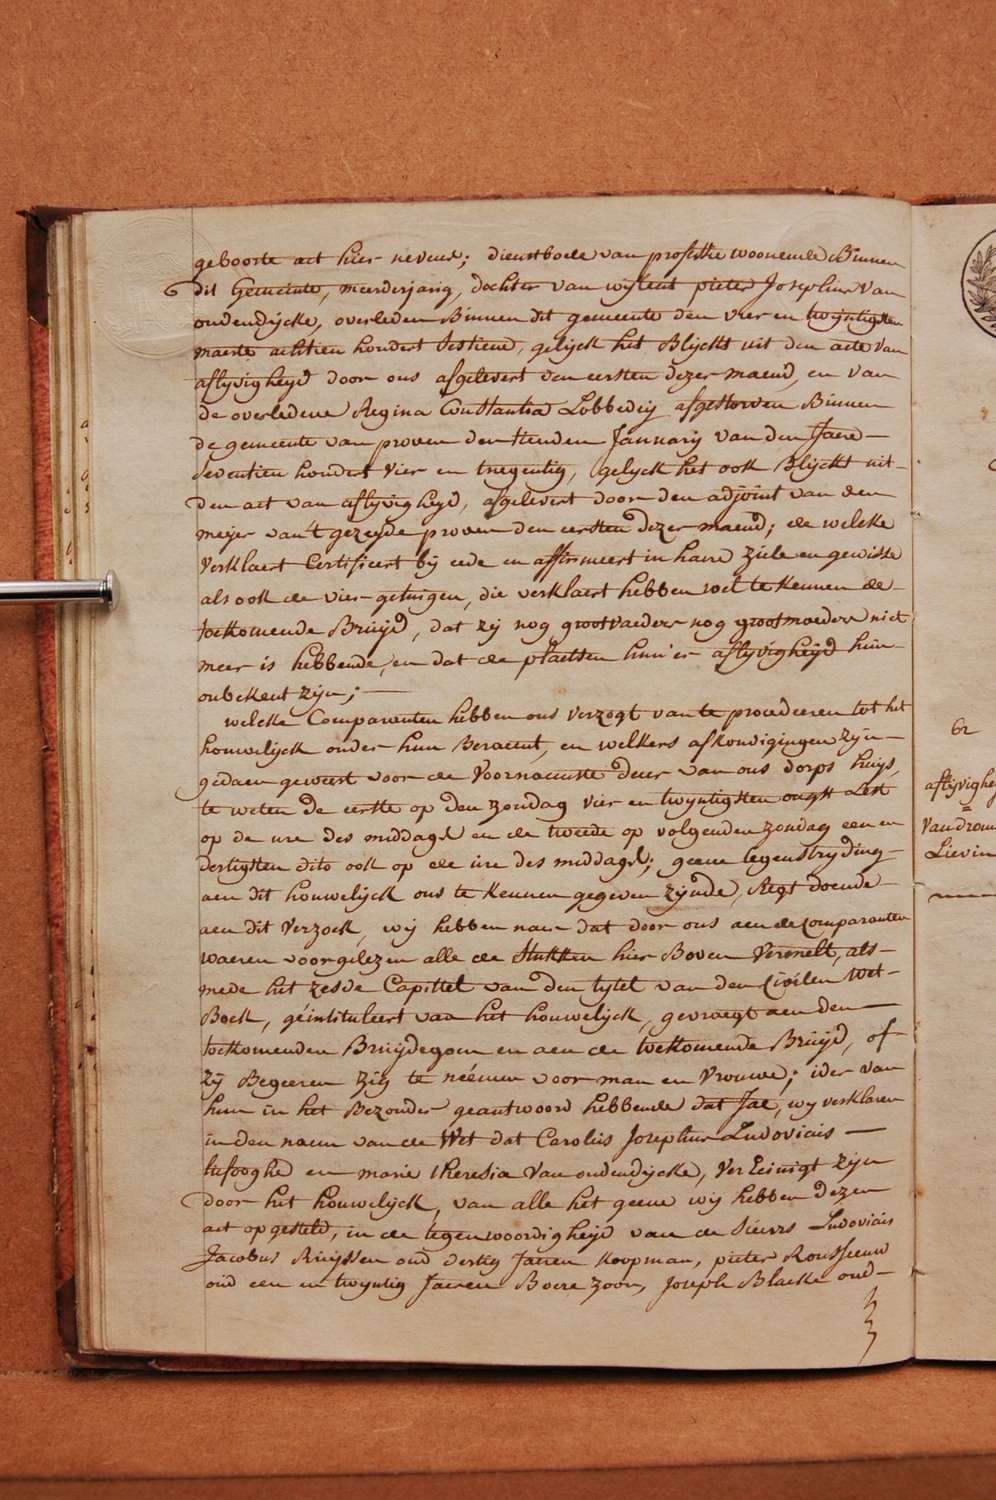 geboorte act hier nevens; dienstbode van profissie woonende Binnen
dit Gemeinte, meerderjarig, dochter van wijlent pieter Josephus van
oudendijcke, overleden Binnen dit gemeente den vier en twijntigsten
maerte achtien hondert sestiend, gelijck het Blijckt uit den acte van
aflijvigheijd door ons afgelevert den eersten dezer maend, en van
de overledene Regina Constantia Lobbedeij afgestorven Binnen
de gemeente van proven den tienden Januarij van den Jaere
seventien hondert vier en tnegentig, gelijck het ook Blijckt uit
den act van aflijvigheijd, afgelevert door den adjoint van den
meijer van 't gezeijde proven den eersten dezer maend; de welcke
verklaert Certificert bij eede en affirmeert in haere ziele en gewisse
als ook de vier getuigen, die verklaert hebben wel te kennen de
toekomende Bruijd, dat zij nog grootvaeders nog grootmoeders niet
meer is hebbende, en dat de plaetsen hun'er aflijvigheijd hun
onbekent zijn;
welcke Comparanten hebben ons verzogt van te procedeeren tot het
houwelijck onder hun Beraemt, en welkers afkondigingen zijn
gedaen geweest voor de voornaemste deur van ons dorps huijs,
te weten de eerste op den zondag vier en twijntigsten ougst Lest
op de ure des middags en de tweede op volgenden zondag een en
dertigsten dito ook op de ure des middags; geene tegenstrijding
aen dit houwelijck ons te kennen gegeven zijnde, Regt doende
aen dit verzoek, wij hebben naer dat door ons aen de Comparanten
waeren voorgelezen alle de stukken hier Boven vermelt, als
mede het zesde Capittel van den tijtel van den Civilen Wet
Boek, géintituleert van het houwelijck, gevraegt aen den
toekomenden Bruijdegom en aen de toekomende Bruijd, of
zij Begeeren zig te neémen voor man en vrouwe; ider van
hun in het Bezonder geantwoord hebbende dat Jae, wy verklaren
in den naem van de Wet dat Carolus Josephus Ludovicus
hufooghe en marie theresia van oudendijcke, vereinigt zijn
door het houwelijck, van alle het geene wij hebben dezen
act opgesteld, in de tegenwoordigheijd van de sieurs Ludovicus
Jacobus Ruijssen oud dertig Jaeren koopman, pieter Rousseeuw
oud een en twijntig Jaeren Boere zoon, Joseph Blacke oud
62
aflijvighe
Van
Lievin